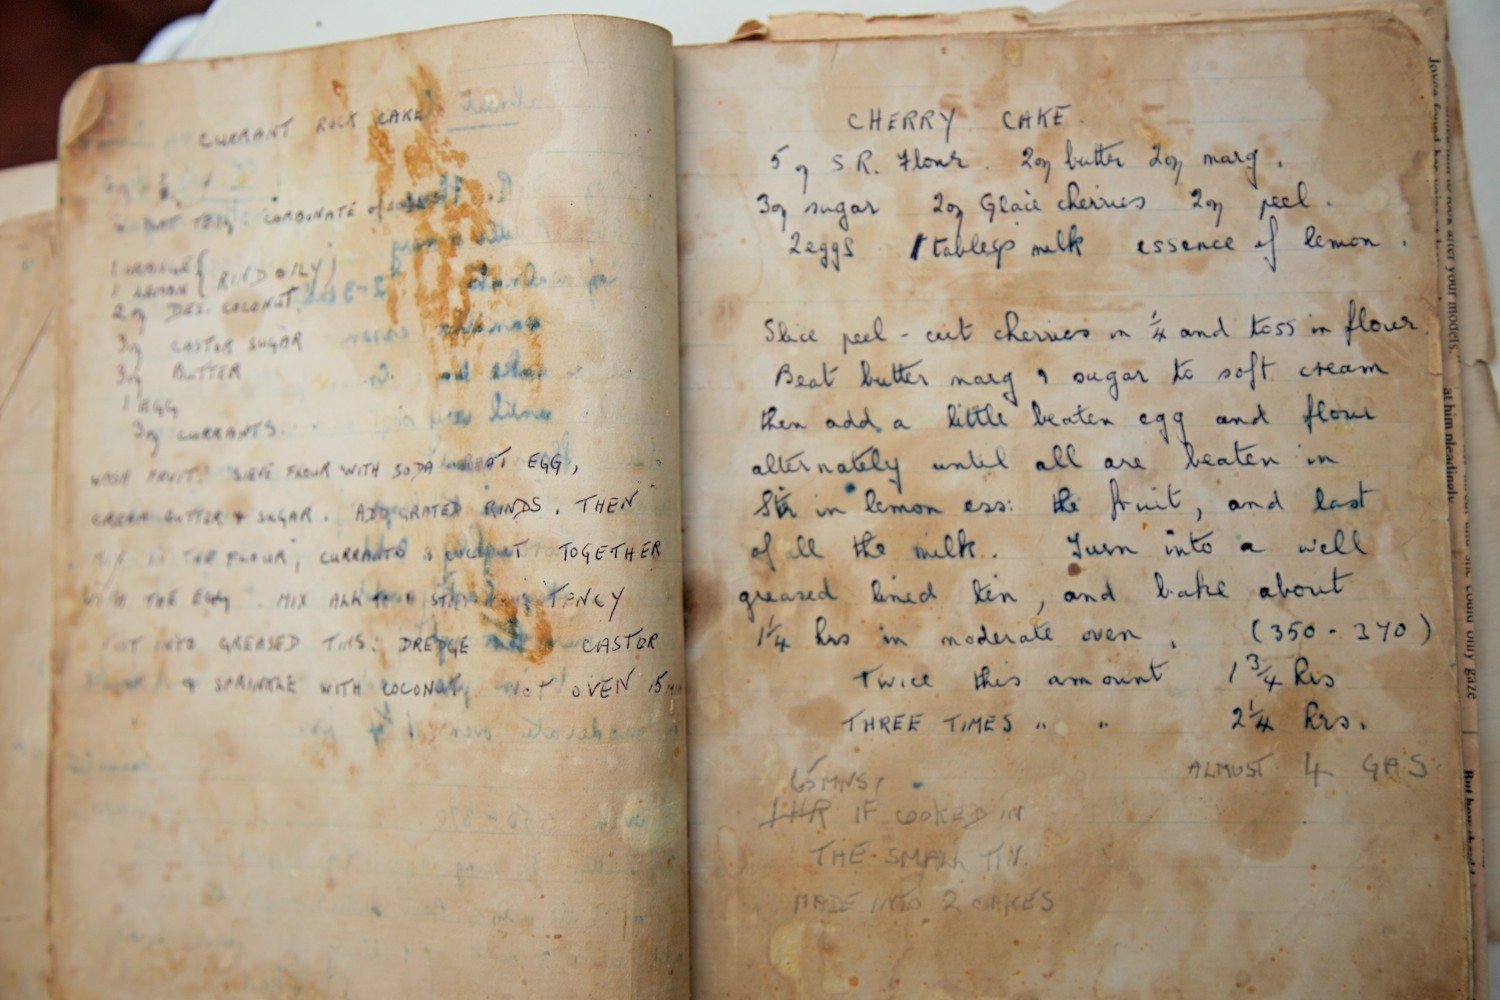 CURRANT ROCK CAKE
CARBONATE of
1 ORANGE { RIND ONLY )
1 LEMON
2oz DES. COCONUT.
3oz CASTOR SUGAR
3oz BUTTER
1 EGG
3oz CURRANTS.
WASH FRUIT. SIEVE FLOUR WITH SODA EGG,
CREAM BUTTER & SUGAR. ADD GRATED RINDS. THEN
MIX IN THE FLOUR, CURRANTS & COCONUT TOGETHER
WITH THE EGG. MIX ALL TO A
PUT INTO GREASED TINS. DREDGE CASTOR
& SPRINKLE WITH COCONUT. HOT OVEN 15
CHERRY CAKE.
5oz S R. Flour. 2oz butter 2oz marg.
3oz sugar 2oz Glacé cherries 2oz peel.
2 eggs 1 tablesp milk essence of lemon.
Slice peel - cut cherries in ¼ and toss in flour.
Beat butter marg & sugar to soft cream
then add a little beaten egg and flour
alternately until all are beaten in
Stir in lemon ess: the fruit, and last
of all the milk. Turn into a well
greased lined tin, and bake about
1¼ hrs in moderate oven. (350 - 370)
Twice this amount 1¾ hrs
THREE TIMES " " 2¼ hrs.
ALMOST 4 GAS
65 MNS,
1 HR IF COOKED IN
THE SMALL TIN.
MADE INTO 2 CAKES
after your models.
at him pleadingly.
could only gaze